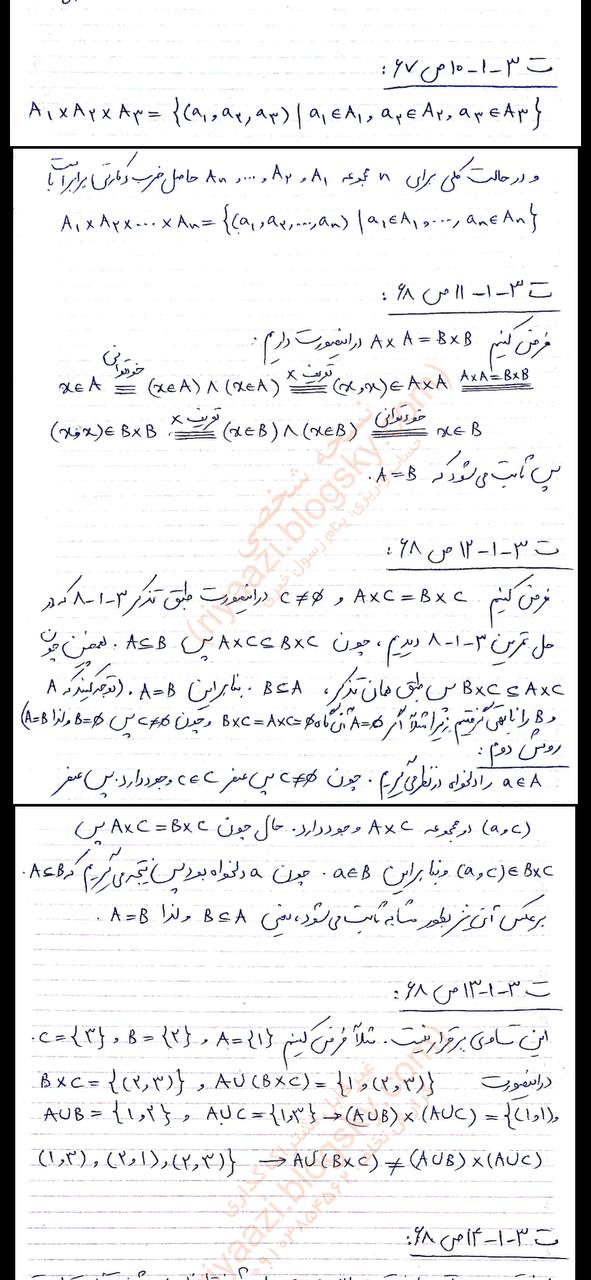 ت ۳-۱-۱۰ ص ۶۷:
A₁ × A₂ × A₃ = {(a₁, a₂, a₃) | a₁ ∈ A₁, a₂ ∈ A₂, a₃ ∈ A₃}
و در حالت کلی برای n مجموعه A₁, A₂, ..., Aₙ حاصل ضرب دکارتی برابر است با
A₁ × A₂ × ... × Aₙ = {(a₁, a₂, ..., aₙ) | a₁ ∈ A₁, ..., aₙ ∈ Aₙ}
ت ۳-۱-۱۱ ص ۶۸:
فرض کنیم A × A = B × B در اینصورت داریم:
x ∈ A خودتوانی ≡ (x ∈ A) ∧ (x ∈ A) تعریف × ≡ (x, x) ∈ A × A A×A=B×B ≡
(x, x) ∈ B × B تعریف × ≡ (x ∈ B) ∧ (x ∈ B) خودتوانی ≡ x ∈ B
پس ثابت می‌شود که A = B.
ت ۳-۱-۱۲ ص ۶۸:
فرض کنیم A × C = B × C و C ≠ ∅ در اینصورت طبق تذکر ۳-۱-۸ که در
حل تمرین ۳-۱-۸ دیدیم، چون A × C ⊆ B × C پس A ⊆ B. همچنین چون
B × C ⊆ A × C پس طبق همان تذکر، B ⊆ A. بنابراین A = B. (توجه کنید که A
و B را ناتهی گرفتیم زیرا مثلاً اگر A = ∅ آنگاه B × C = A × C = ∅ و چون C ≠ ∅ پس B = ∅ ولذا A = B)
روش دوم:
a ∈ A را دلخواه در نظر می‌گیریم. چون C ≠ ∅ پس عنصر c ∈ C وجود دارد. پس عنصر
(a, c) در مجموعه A × C وجود دارد. حال چون A × C = B × C پس
(a, c) ∈ B × C وبنابراین a ∈ B. چون a دلخواه بود پس نتیجه می‌گیریم که A ⊆ B.
برعکس آن نیز بطور مشابه ثابت می‌شود، یعنی B ⊆ A ولذا A = B.
ت ۳-۱-۱۳ ص ۶۸:
این تساوی برقرار نیست. مثلاً فرض کنیم A = {۱}, B = {۲}, C = {۳}.
در اینصورت B × C = {(۲, ۳)}, A ∪ (B × C) = {۱, (۲, ۳)}
A ∪ B = {۱, ۲}, A ∪ C = {۱, ۳} → (A ∪ B) × (A ∪ C) = {(۱, ۱),
(۱, ۳), (۲, ۱), (۲, ۳)} → A ∪ (B × C) ≠ (A ∪ B) × (A ∪ C)
ت ۳-۱-۱۴ ص ۶۸: